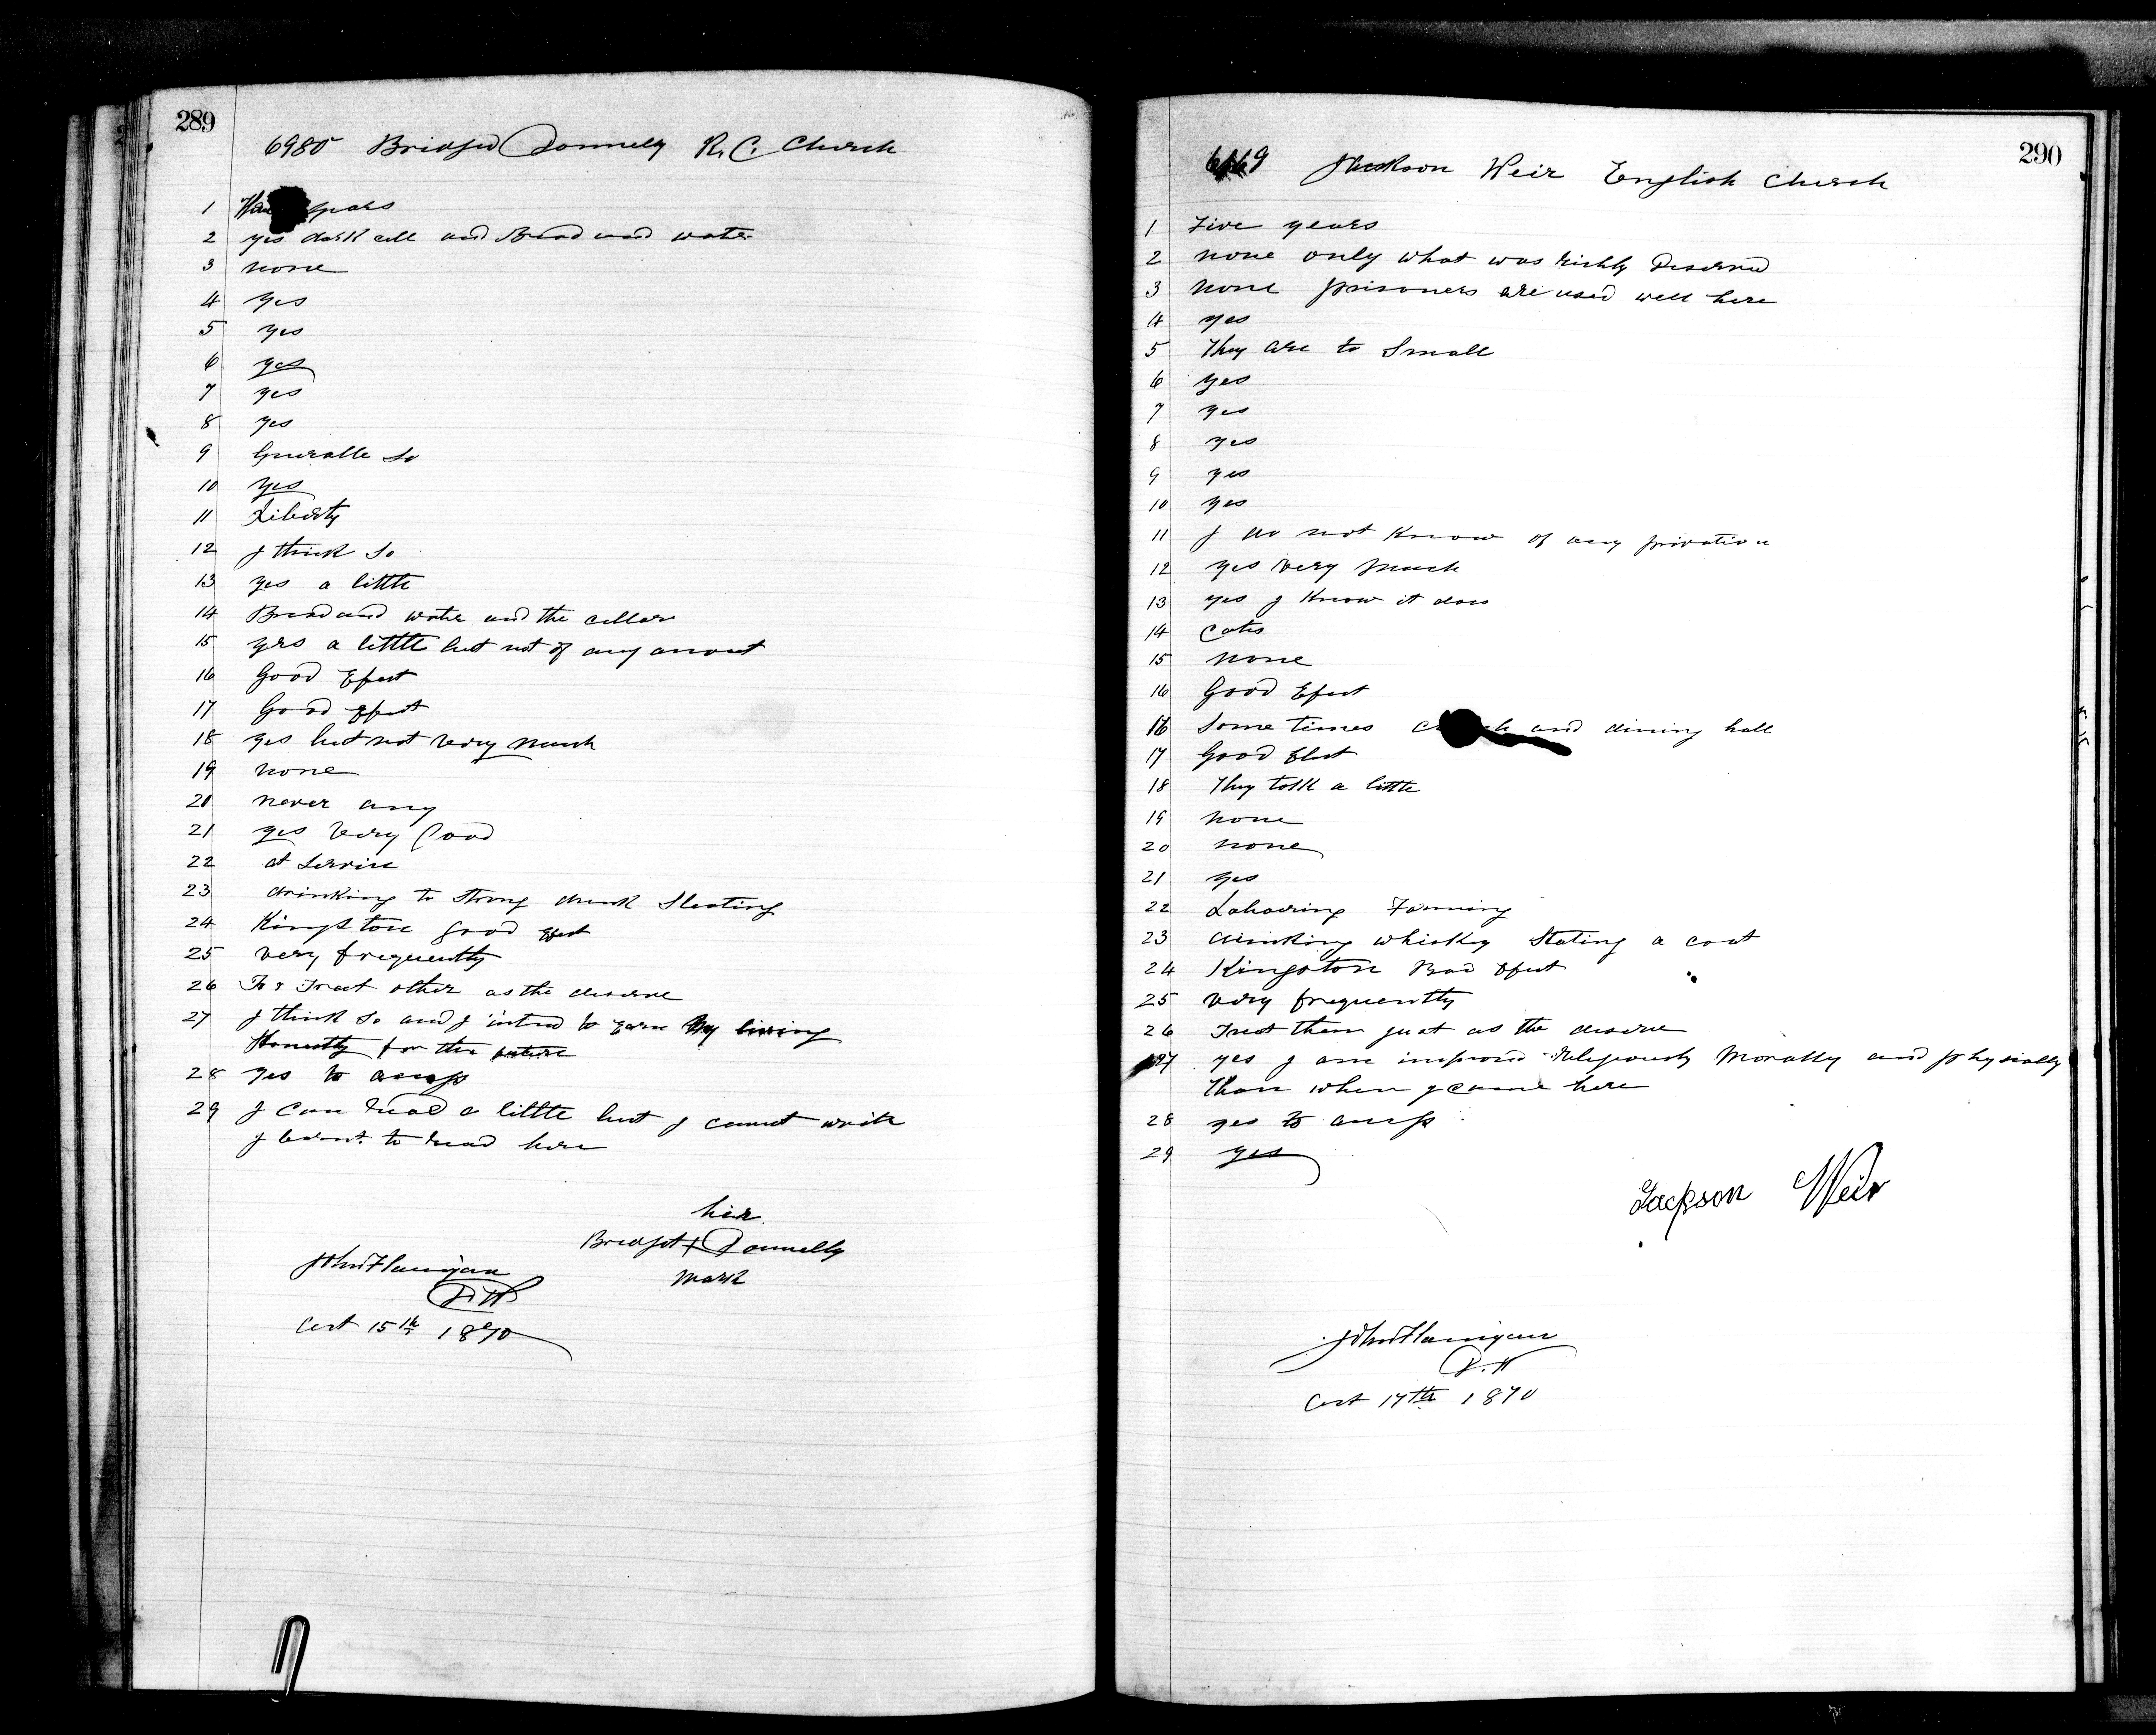 289
6980 Bridget Donnelly R. C. Church
1 years
2 yes dark cell and Bread and water
3 none
4 yes
5 yes
6 yes
7 yes
8 yes
9 Generalle So
10 yes
11 Liberty
12 I think So
13 yes a little
14 Bread and water and the celler
15 yes a little but not of any amout
16 Good Efect
17 Good Efect
18 yes but not very much
19 none
20 never any
21 yes very Good
22 at Service
23 drinking to Strong drink Steating
24 Kingston good Efect
25 very frequently
26 To Treat other as the deserve
27 I think So and I intend to Earn My living
Honestly for the future
28 yes to
29 I can read a little but I cannot write
I learnt to read here
her
Bridget + Donnelly
mark
John Flanigan
15th 1870
290
Jackson Weir English Church
1 Five years
2 none only what was richly Deserved
3 none prisoners are used well here
4 yes
5 They are to Small
6 yes
7 yes
8 yes
9 yes
10 yes
11 I do not Know of any privation
12 yes very much
13 yes I Know it does
14 Cats
15 none
16 Good Efect
16 Some times and dining hall
17 Good Efect
18 They talk a little
19 none
20 none
21 yes
22 Labouring Farming
23 drinking whiskey Stating a coat
24 Kingston Bad Efect
25 very frequently
26 Treat them just as the deserve
27 yes I am improved Religiously Morally and physially
than when I came here
28 yes to
29 yes
Jackson Weir
John Flanigan
17th 1870